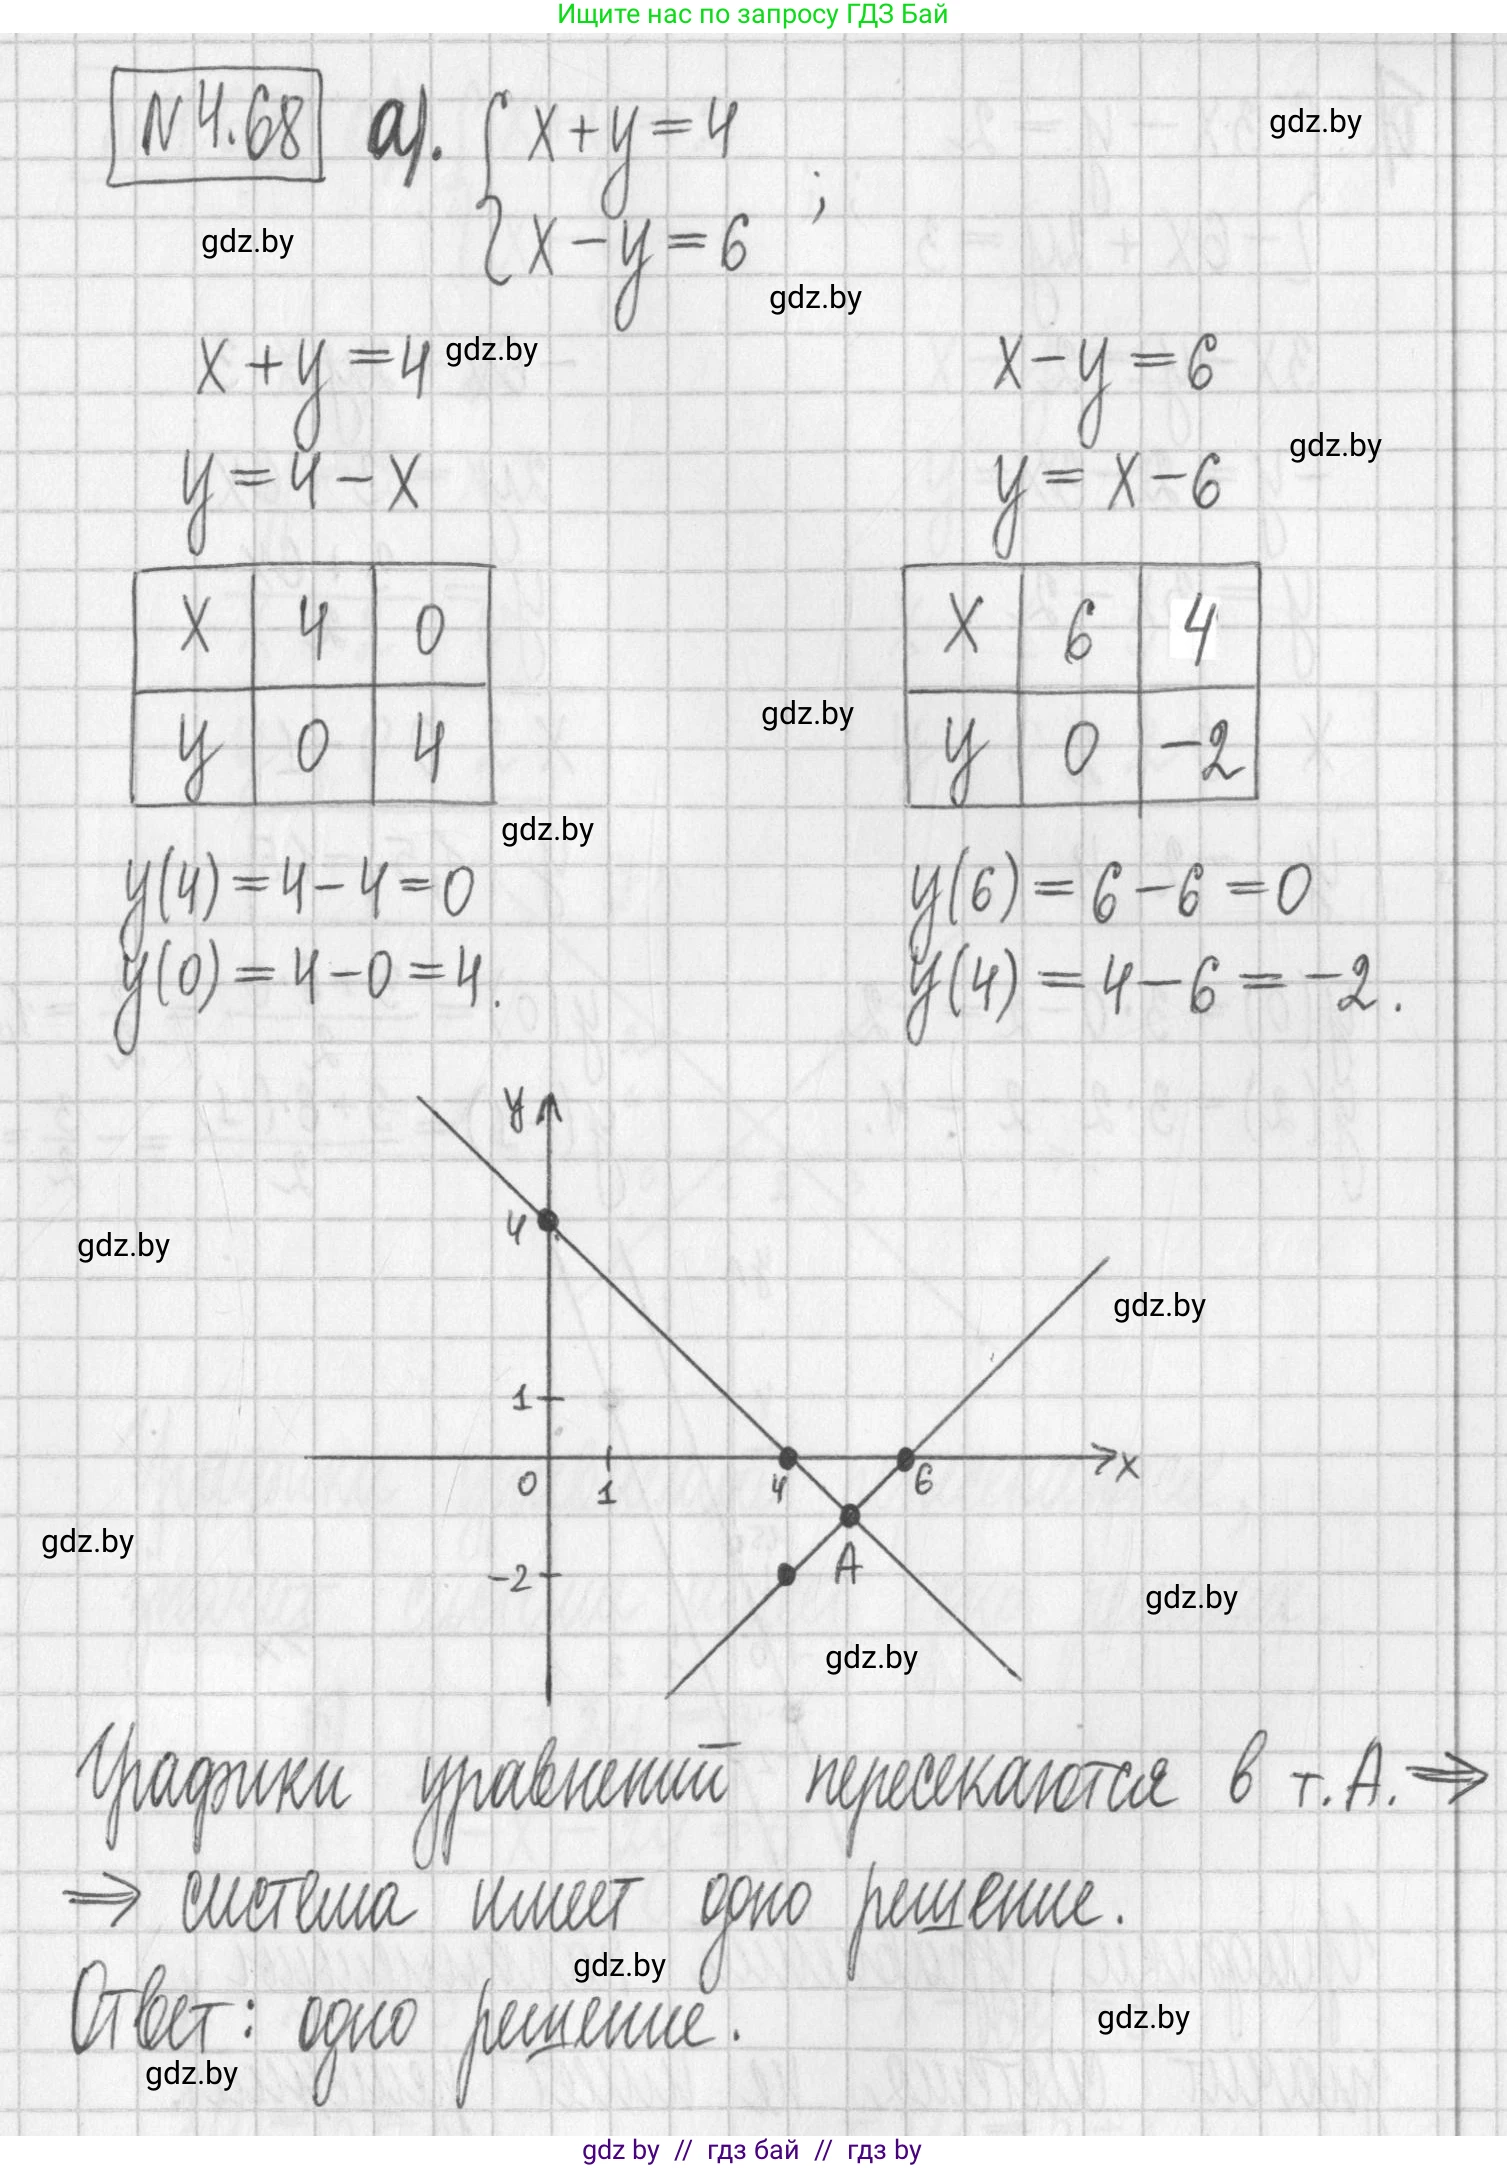 Ищите нас по запросу ГДЗ Бай
N 4.68 а). { x + y = 4
gdz.by
gdz.by
{ x - y = 6 ;
gdz.by
x + y = 4 gdz.by x - y = 6
gdz.by
y = 4 - x y = x - 6
x 4 0 x 6 4
gdz.by
y 0 4 y 0 -2
gdz.by
y(4) = 4 - 4 = 0 y(6) = 6 - 6 = 0
y(0) = 4 - 0 = 4. y(4) = 4 - 6 = -2.
y
4
gdz.by
gdz.by
1
0 1 4 6 x
gdz.by
-2 A
gdz.by
gdz.by
Графики уравнений пересекаются в т. А. ⇒
⇒ система имеет одно решение.
gdz.by
Ответ: одно решение.
gdz.by
gdz.by
gdz by // гдз бай // гдз by